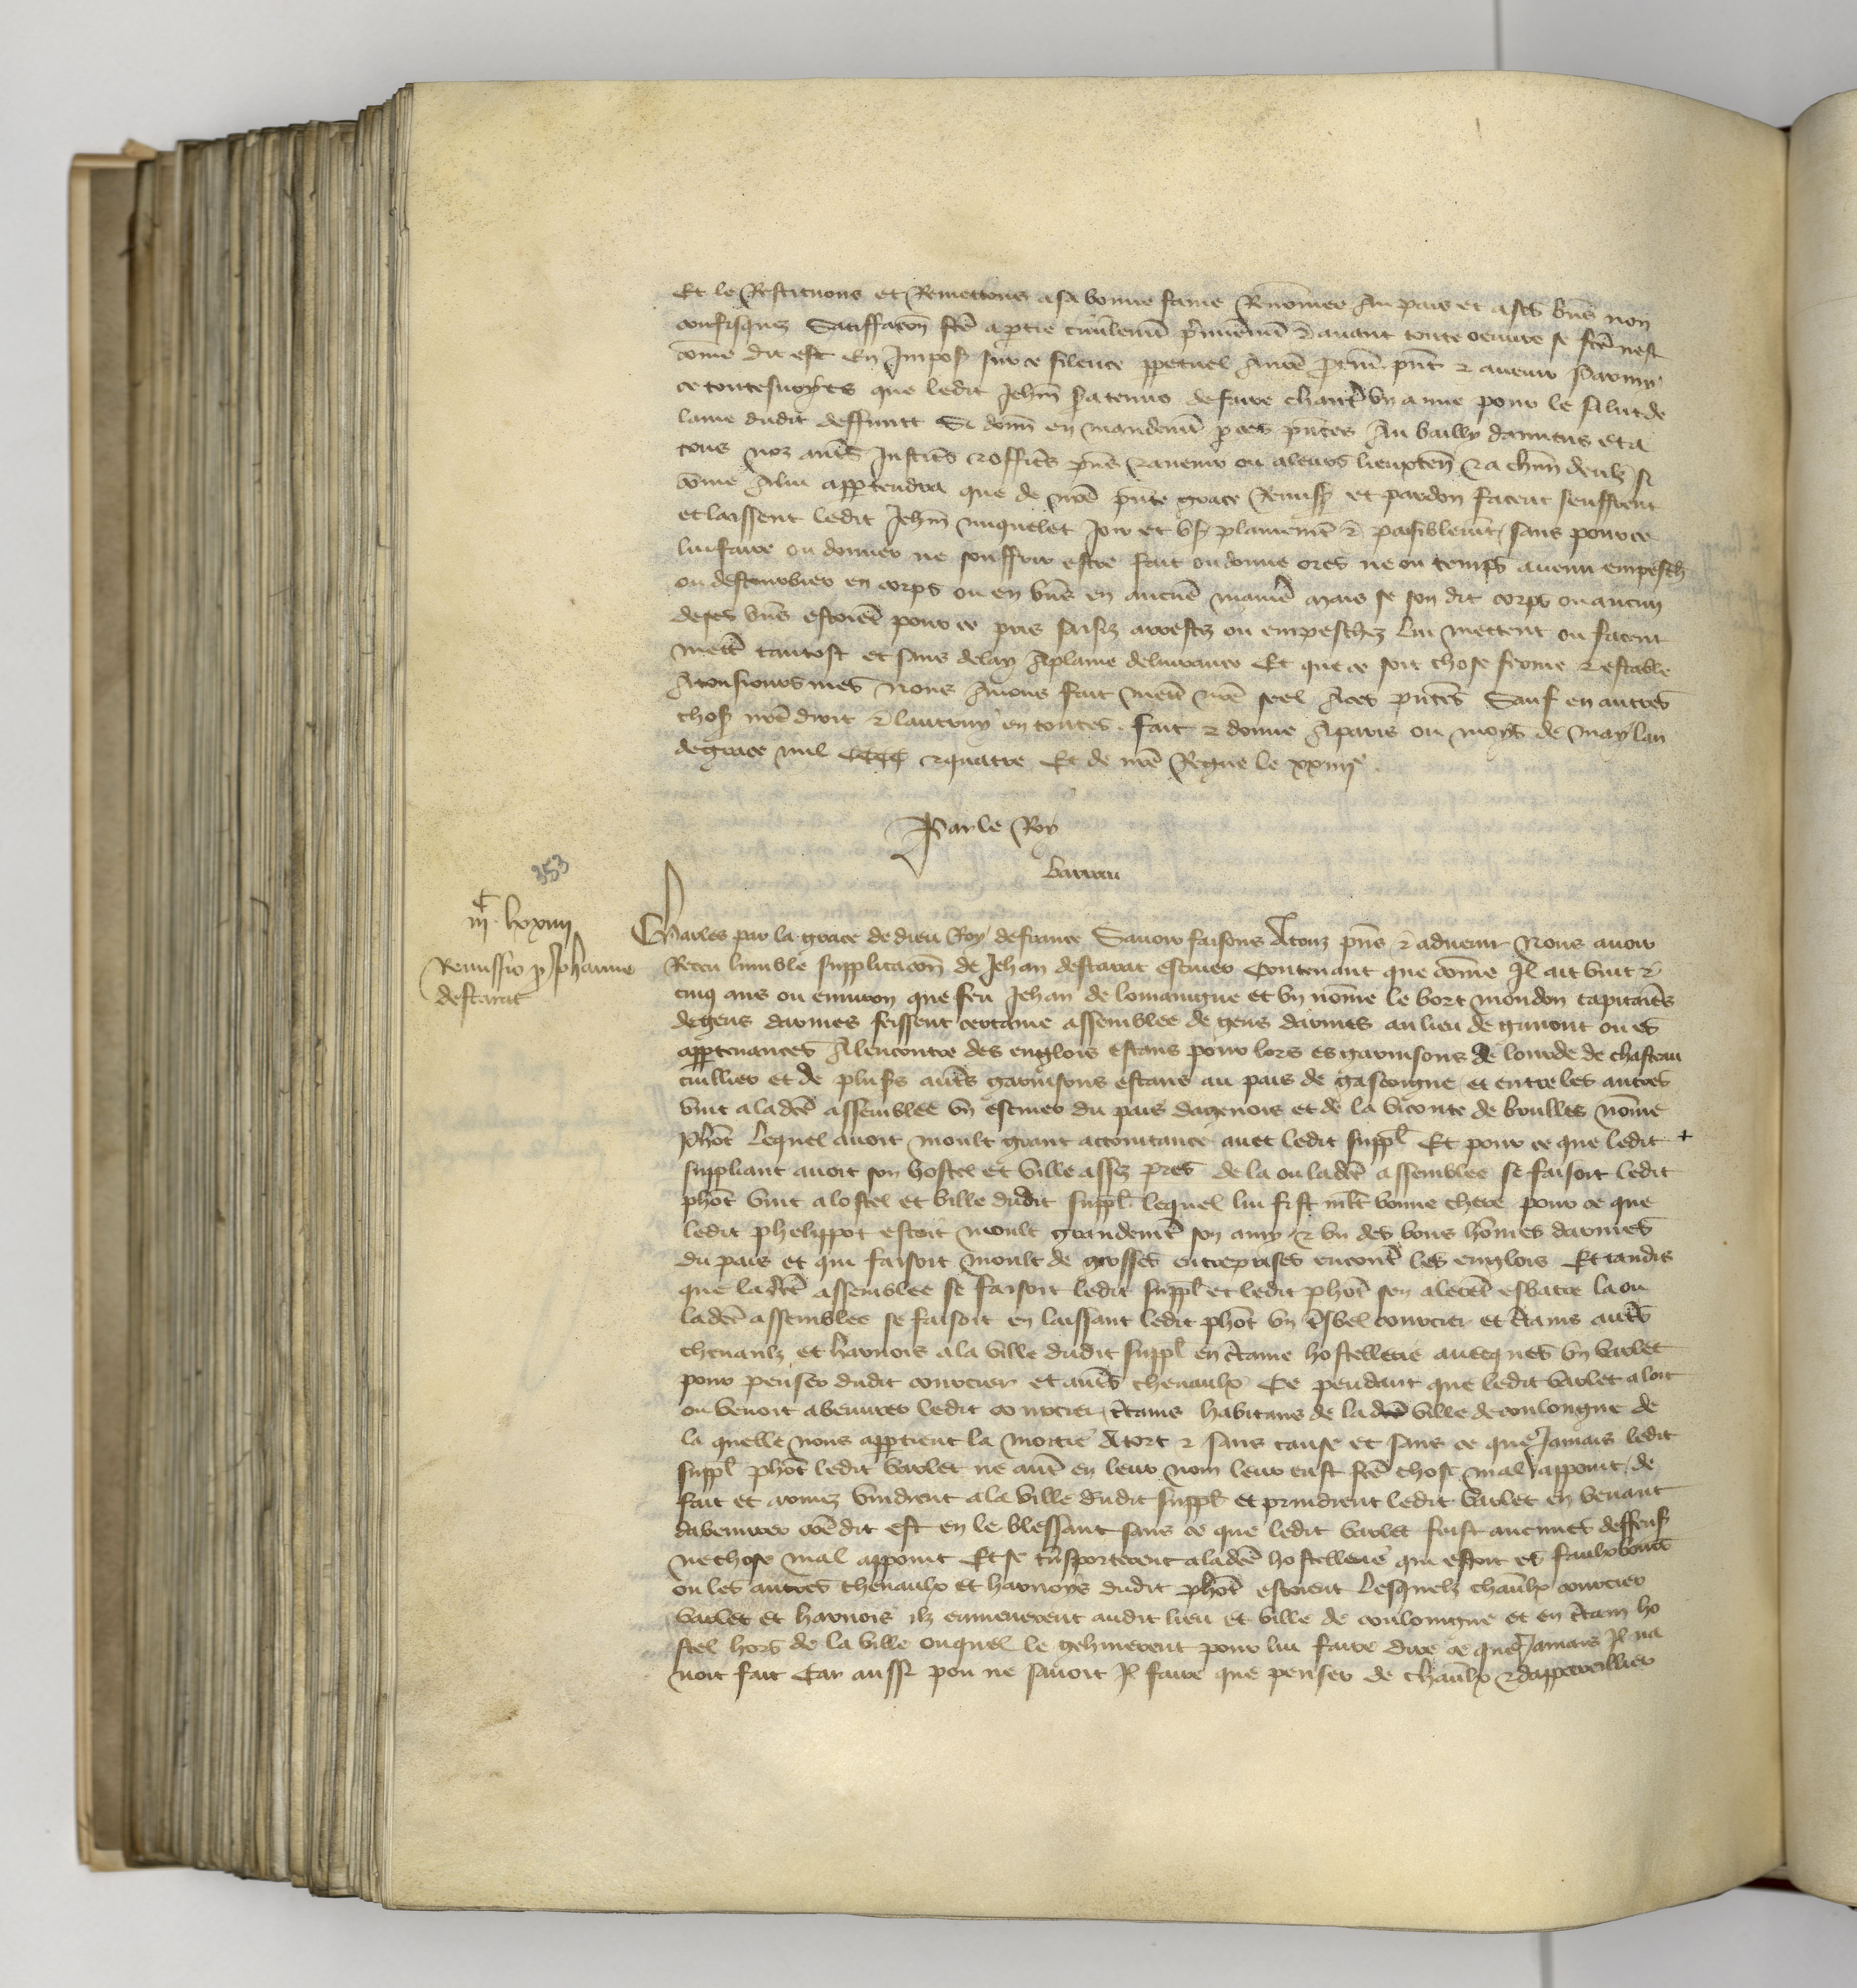 Et le Restituons et Remettons a sa bonne fame Renomee Au pais et a ses bns non
confisquez Satiffacon fce a ptie ciuilemt p̃mieremt & auant toute oeuure se fce nest
come dit est En Impos sur ce silence ppetuel A nre procur pnt & auenir parmy
ce toutesuoyes que ledit Jehan sa tenus de faire chanter vn anne pour le salut de
lame dudit deffunct Si donn en mandemt p ces pntes Au bailly damiens et a
tous noz autres Justic̃s & offic̃s pns & auenir ou a leurs lieuxten & a chun deulz si
come A lui appartendra que de nre pnte grace Remiss et pardon facent seuffrent
et laissent ledit Jehan miquelet Joir et vs plainemt & paisiblemt sans pour ce
lui faire ou donner ne souffrir estre fait ou donne ores ne ou temps auenir empesch
ou destourbier en corps ou en bns en aucune maniere Mais se son dit corps ou aucun
de ses bns estoient pour ce pris saisiz arrestez ou empeschez lui mettent ou facent
mett tantost et sans delay A plaine deliurance Et que ce soit chose ferme & estable
A tousiours mes Nous Auons fait mett nre seel A ces pntes Sauf en autres
chos nre droit & lautruy en toutes. Fait & donne A paris ou moys de may lan
de grace mil CCCC & quatre Et de nre Regne le xxiiije.
Par le Roy
Barrau
353
iijC lxxiiij
Remissio p Johanne
destarat
Charles par la grace de dieu Roy de france Sauoir faisons A touz pns & aduenir Nous auoir
Receu lumble supplicacon de Jehan destarat escuier Contenant que come Il ait vint &
cinq ans ou enuiron que feu Jehan de lomaigne et vn nome le bort mondon capitaines
de gens darmes feissent certaine assemblee de gens darmes au lieu de gimont ou es
appartenances A lencontre des englois estans pour lors es garnisons de lourde de chasteau
cuillier et de plusrs autres garnisons estans au pais de gascoigne et entre les autres
vint a ladce assemblee vn escuier du pais dagenois et de la viconte de boulles nome
Phot Lequel auoit moult grant accointance auec ledit suppl Et pour ce que ledit +
suppliant auoit son hostel et ville assez pres de la ou ladce assemblee se faisoit ledit
phot vint a lostel et ville dudit suppl lequel lui fist mlt bonne chere pour ce que
ledit phelippot estoit moult grandemt son amy & vn des bons homes darmes
du pais et qui faisoit moult de grosses entreprises encont les englois Et tandis
que ladce assemblee se faisoit ledit suppl et ledit phot sen alerent esbatre la ou
ladce assemblee se faisoit en laissant ledit phot vn tsbel courcier et ctains autres
cheuaulz et harnois a la ville dudit suppl en ctaine hostellerie auecques vn varlet
pour penser dudit courcier et autres cheuaulx Ce pendant que ledit varlet aloit
ou venoit abeuurer ledit courcier ctains habitans de la ville de coulongne de
la quelle nous appartient la moitie A tort & sans cause et sans ce que Jamais ledit
suppl phot ledit varlet ne autre en leur nom leur eust fce chose mal appoint de
fait et armez vindrent a la ville dudit suppl et prindrent ledit varlet en venant
dabeuurer come dit est en le blessant sans ce que ledit varlet feist aucunes deffens
ne chose mal appoint Et se tnsporterent a ladce hostellerie qui estoit es faulxbours
ou les autres cheuaulx et harnoys dudit phot estoient Lesquelz chaulx courcier
varlet et harnois ilz enmenerent audit lieu et ville de coulongne et en ctain ho
stel hors de la ville ouquel le gehinerent pour lui faire dire ce que Jamais Il na
uoit fait Car aussi pou ne sauoit Il faire que penser de chaulx & dappareillier